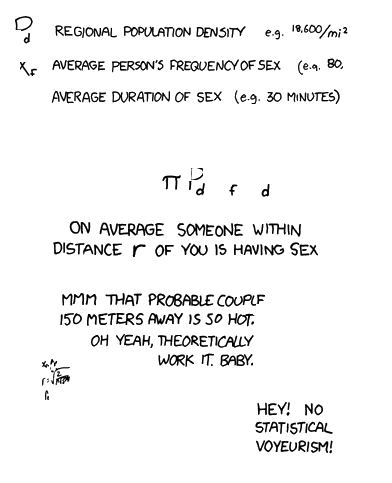 P d REGIONAL POPULATION DENSITY e.g. 18,600/mi²
X f AVERAGE PERSON'S FREQUENCY OF SEX (e.g. 80,
AVERAGE DURATION OF SEX (e.g. 30 MINUTES)
π P d f d
ON AVERAGE SOMEONE WITHIN
DISTANCE r OF YOU IS HAVING SEX
MMM THAT PROBABLE COUPLE
150 METERS AWAY IS SO HOT.
OH YEAH, THEORETICALLY
WORK IT. BABY.
HEY! NO
STATISTICAL
VOYEURISM!